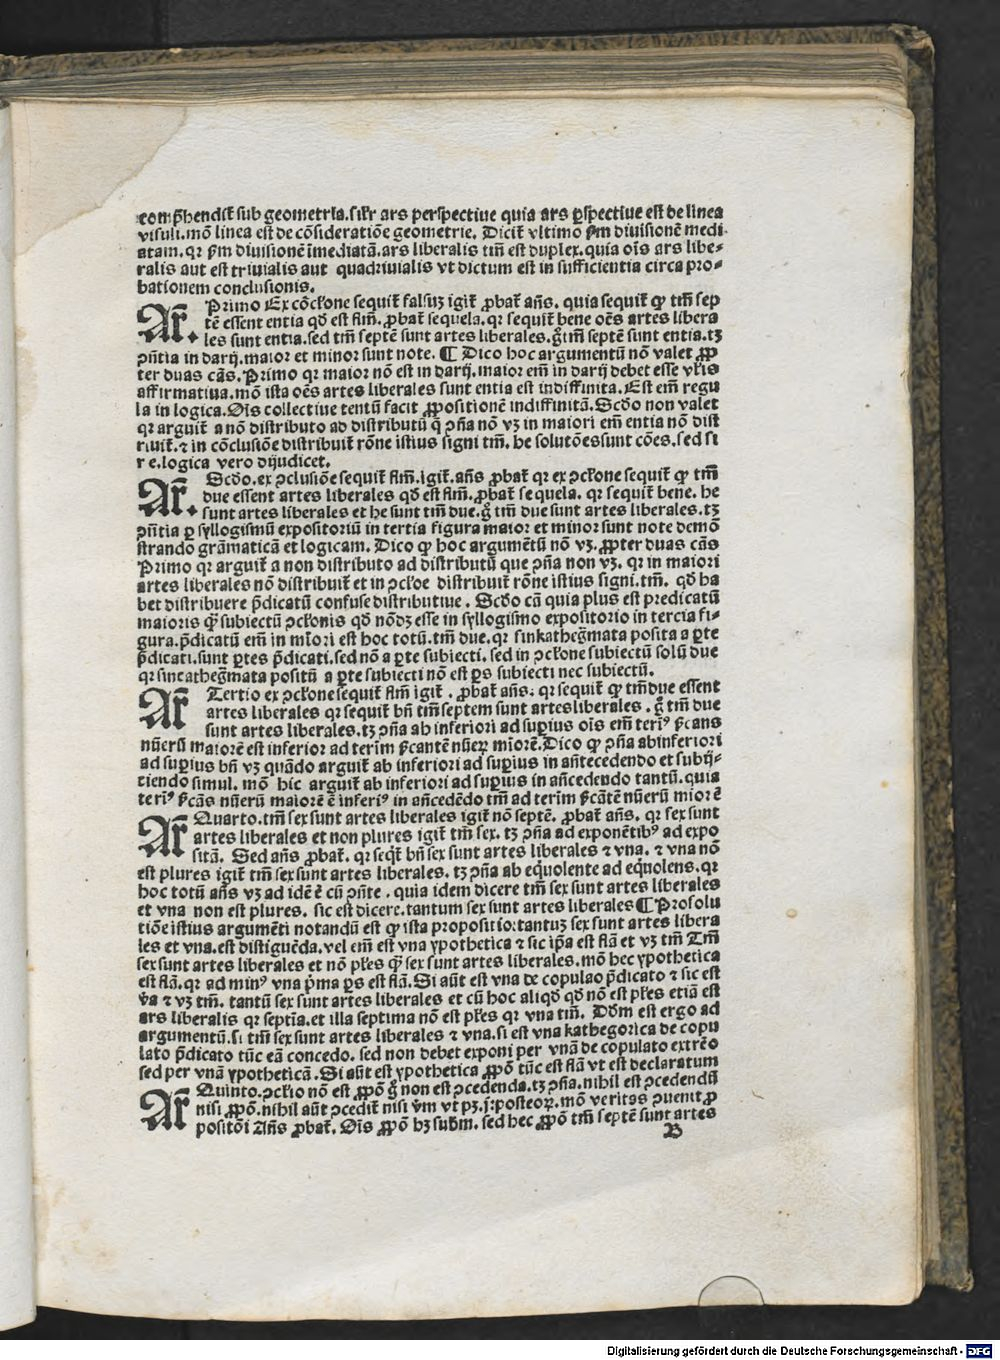 comp̄hendit̄ sub geometria. sil'r ars perspectiue quia ars ꝑspectiue est de linea
visuli. mō linea est de cōsideratiōe geometrie. Dicit̄ vltimo ꝑm diuisionē medi
atam. qr ꝑm diuisionē īmediatā. ars liberalis tm̄ est duplex. quia oīs ars libe-
ralis aut est triuialis aut quadriuialis vt dictum est in sufficientia circa pro-
bationem conclusionis.
Ar̄. Primo Ex cōcl'one sequit̄ falsuꝫ igit̄ ꝓbat̄ an̄s. quia sequit̄ ꝙ tm̄ sep
tē essent entia qd̄ est fl̄m. ꝓbat̄ sequela. qr sequit̄ bene oēs artes libera
les sunt entia. sed tm̄ septē sunt artes liberales. g̊ tm̄ septē sunt entia. tꝫ
ꝯn̄tia in darij. maior et minor sunt note. ¶ Dico hoc argumentū nō valet ꝓp
ter duas cās. Primo qr maior nō est in darij. maior em̄ in darij debet esse vl'is
affirmatiua. mō ista oēs artes liberales sunt entia est indiffinita. Est em̄ regu
la in logica. Oīs collectiue tentū facit ꝓpositionē indiffinitā. Scd̄o non valet
qr arguit̄ a nō distributo ad distributū q̄ ꝯn̄a nō vꝫ in maiori em̄ entia nō dist
riuit̄. ⁊ in cōclusiōe distribuit̄ rōne istius signi tm̄. he solutōes sunt cōes. sed si
r e. logica vero dijudicet.
Ar̄. Scd̄o. ex ꝯclusiōe sequit̄ fl̄m. igit̄. an̄s ꝓbat̄ qr ex ꝯcl'one sequit̄ ꝙ tm̄
due essent artes liberales qd̄ est fl̄m. ꝓbat̄ sequela. qr sequit̄ bene. he
sunt artes liberales et he sunt tm̄ due. g̊ tm̄ due sunt artes liberales. tꝫ
ꝯn̄tia ꝑ syllogismū expositoriū in tertia figura maior et minor sunt note demō
strando grāmaticā et logicam. Dico ꝙ hoc argumētū nō vꝫ. ꝓpter duas cās
Primo qr arguit̄ a non distributo ad distributū que ꝯn̄a non vꝫ. qr in maiori
artes liberales nō distribuit̄ et in ꝯcl'oe distribuit̄ rōne istius signi. tm̄. qd̄ ha
bet distribuere p̄dicatū confuse distributiue. Scd̄o cā quia plus est predicatū
maioris q̄ subiectū ꝯcl'onis qd̄ nōdꝫ esse in syllogismo expositorio in tercia fi-
gura. p̄dicatū em̄ in mīori est hoc totū. tm̄ due. qr sinkatheg̃mata posita a ꝑte
p̄dicati. sunt ꝑtes p̄dicati. sed nō a ꝑte subiecti. sed in ꝯcl'one subiectū solū due
qr sincatheg̃mata positū a ꝑte subiecti nō est ꝑs subiecti nec subiectū.
Ar̄ Tertio ex ꝯcl'one sequit̄ fl̄m igit̄. ꝓbat̄ an̄s. qr sequit̄ ꝙ tm̄ due essent
artes liberales qr sequit̄ bn̄ tm̄ septem sunt artes liberales. g̊ tm̄ due
sunt artes liberales. tꝫ ꝯn̄a ab inferiori ad suꝑius oīs em̄ teri⁹ ꝑcans
nūerū maiorē est inferior ad terīm ꝑcantē nūeꝝ mīorē. Dico ꝙ ꝯn̄a ab inferiori
ad suꝑius bn̄ vꝫ quādo arguit̄ ab inferiori ad suꝑius in an̄tecedendo et subij-
ciendo simul. mō hic arguit̄ ab inferiori ad suꝑius in an̄cedendo tantū. quia
teri⁹ ꝑcās nūerū maiorē ē inferi⁹ in an̄cedēdo tm̄ ad terīm ꝑcātē nūerū miorē
Ar̄ Quarto. tm̄ sex sunt artes liberales igit̄ nō septē. ꝓbat̄ an̄s. qr sex sunt
artes liberales et non plures igit̄ tm̄ sex. tꝫ ꝯn̄a ad exponētib⁹ ad expo
sitā. Sed an̄s ꝓbat̄. qr seqt̄ bn̄ sex sunt artes liberales ⁊ vna. ⁊ vna nō
est plures igit̄ tm̄ sex sunt artes liberales. tꝫ ꝯn̄a ab eq̄uolente ad eq̄uolens. qr
hoc totū an̄s vꝫ ad idē ē cū ꝯn̄te. quia idem dicere tm̄ sex sunt artes liberales
et vna non est plures. sic est dicere. tantum sex sunt artes liberales ¶ Pro solu
tiōe istius argumēti notandū est ꝙ ista propositio: tantuꝫ sex sunt artes libera
les et vna. est distiguēda. vel em̄ est vna ypothetica ⁊ sic ip̄a est fl̄a et vꝫ tm̄ Tm̄
sex sunt artes liberales et nō pl'es q̄ sex sunt artes liberales. mō hec ypothetica
est fl̄a. qr ad min⁹ vna p̄ma ꝑs est fl̄a. Si aūt est vna de copulao p̄dicato ⁊ sic est
v̄a ⁊ vꝫ tm̄. tantū sex sunt artes liberales et cū hoc aliqd̄ qd̄ nō est pl'es etiā est
ars liberalis qr septīa. et illa septima nō est pl'es qr vna tm̄. Dd̄m est ergo ad
argumentū. si tm̄ sex sunt artes liberales ⁊ vna. si est vna kathegorica de copu
lato p̄dicato tūc eā concedo. sed non debet exponi per vnā de copulato extrēo
sed per vnā ypotheticā. Si aūt est ypothetica ꝓpō tūc est fl̄a vt est declaratum
Ar̄ Quinto. ꝯcl'io nō est ꝓpō g̊ non est ꝯcedenda. tꝫ ꝯn̄a. nihil est ꝯcedendū
nisi ꝓpō. nihil aūt ꝯcedit̄ nisi v̄m vt pꝫ. j: posteoꝝ. mō veritas ꝯuenit ꝓ
positōi An̄s ꝓbat̄. Oīs ꝓpō hꝫ subm̄. sed hec ꝓpō tm̄ septē sunt artes
B
Digitalisierung gefördert durch die Deutsche Forschungsgemeinschaft - DFG